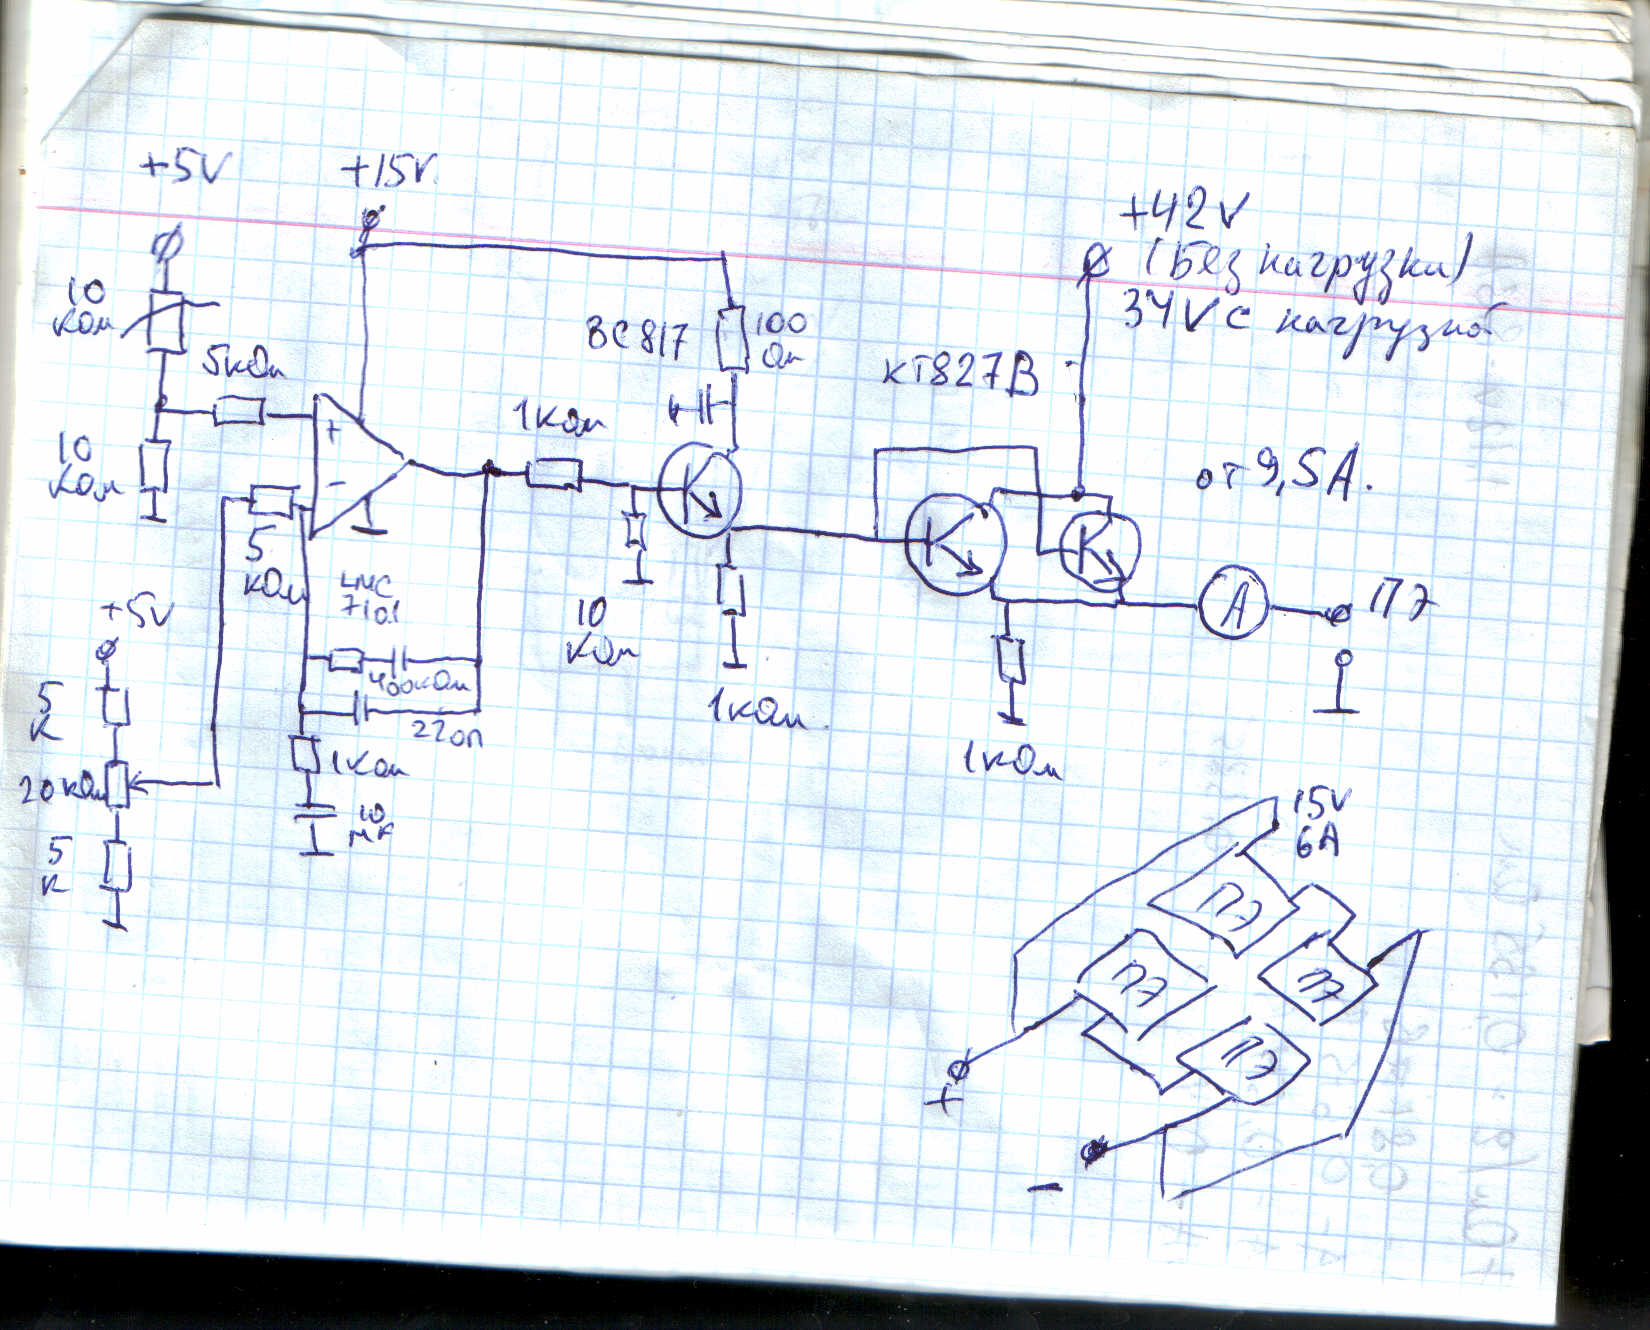 +5V
+15V
+42V
(Без нагрузки)
34V с нагрузкой
10
кОм
5кОм
BC817
100
Ом
КТ827В
1кОм
от 9,5А.
10
кОм
+
-
5
кОм
LMC
7101
10
кОм
A
ПЭ
+5V
400кОм
220п
1кОм.
1кОм
5
к
20кОм
1кОм
10
мк
5
к
15V
6А
ПЭ
ПЭ
ПЭ
ПЭ
+
-